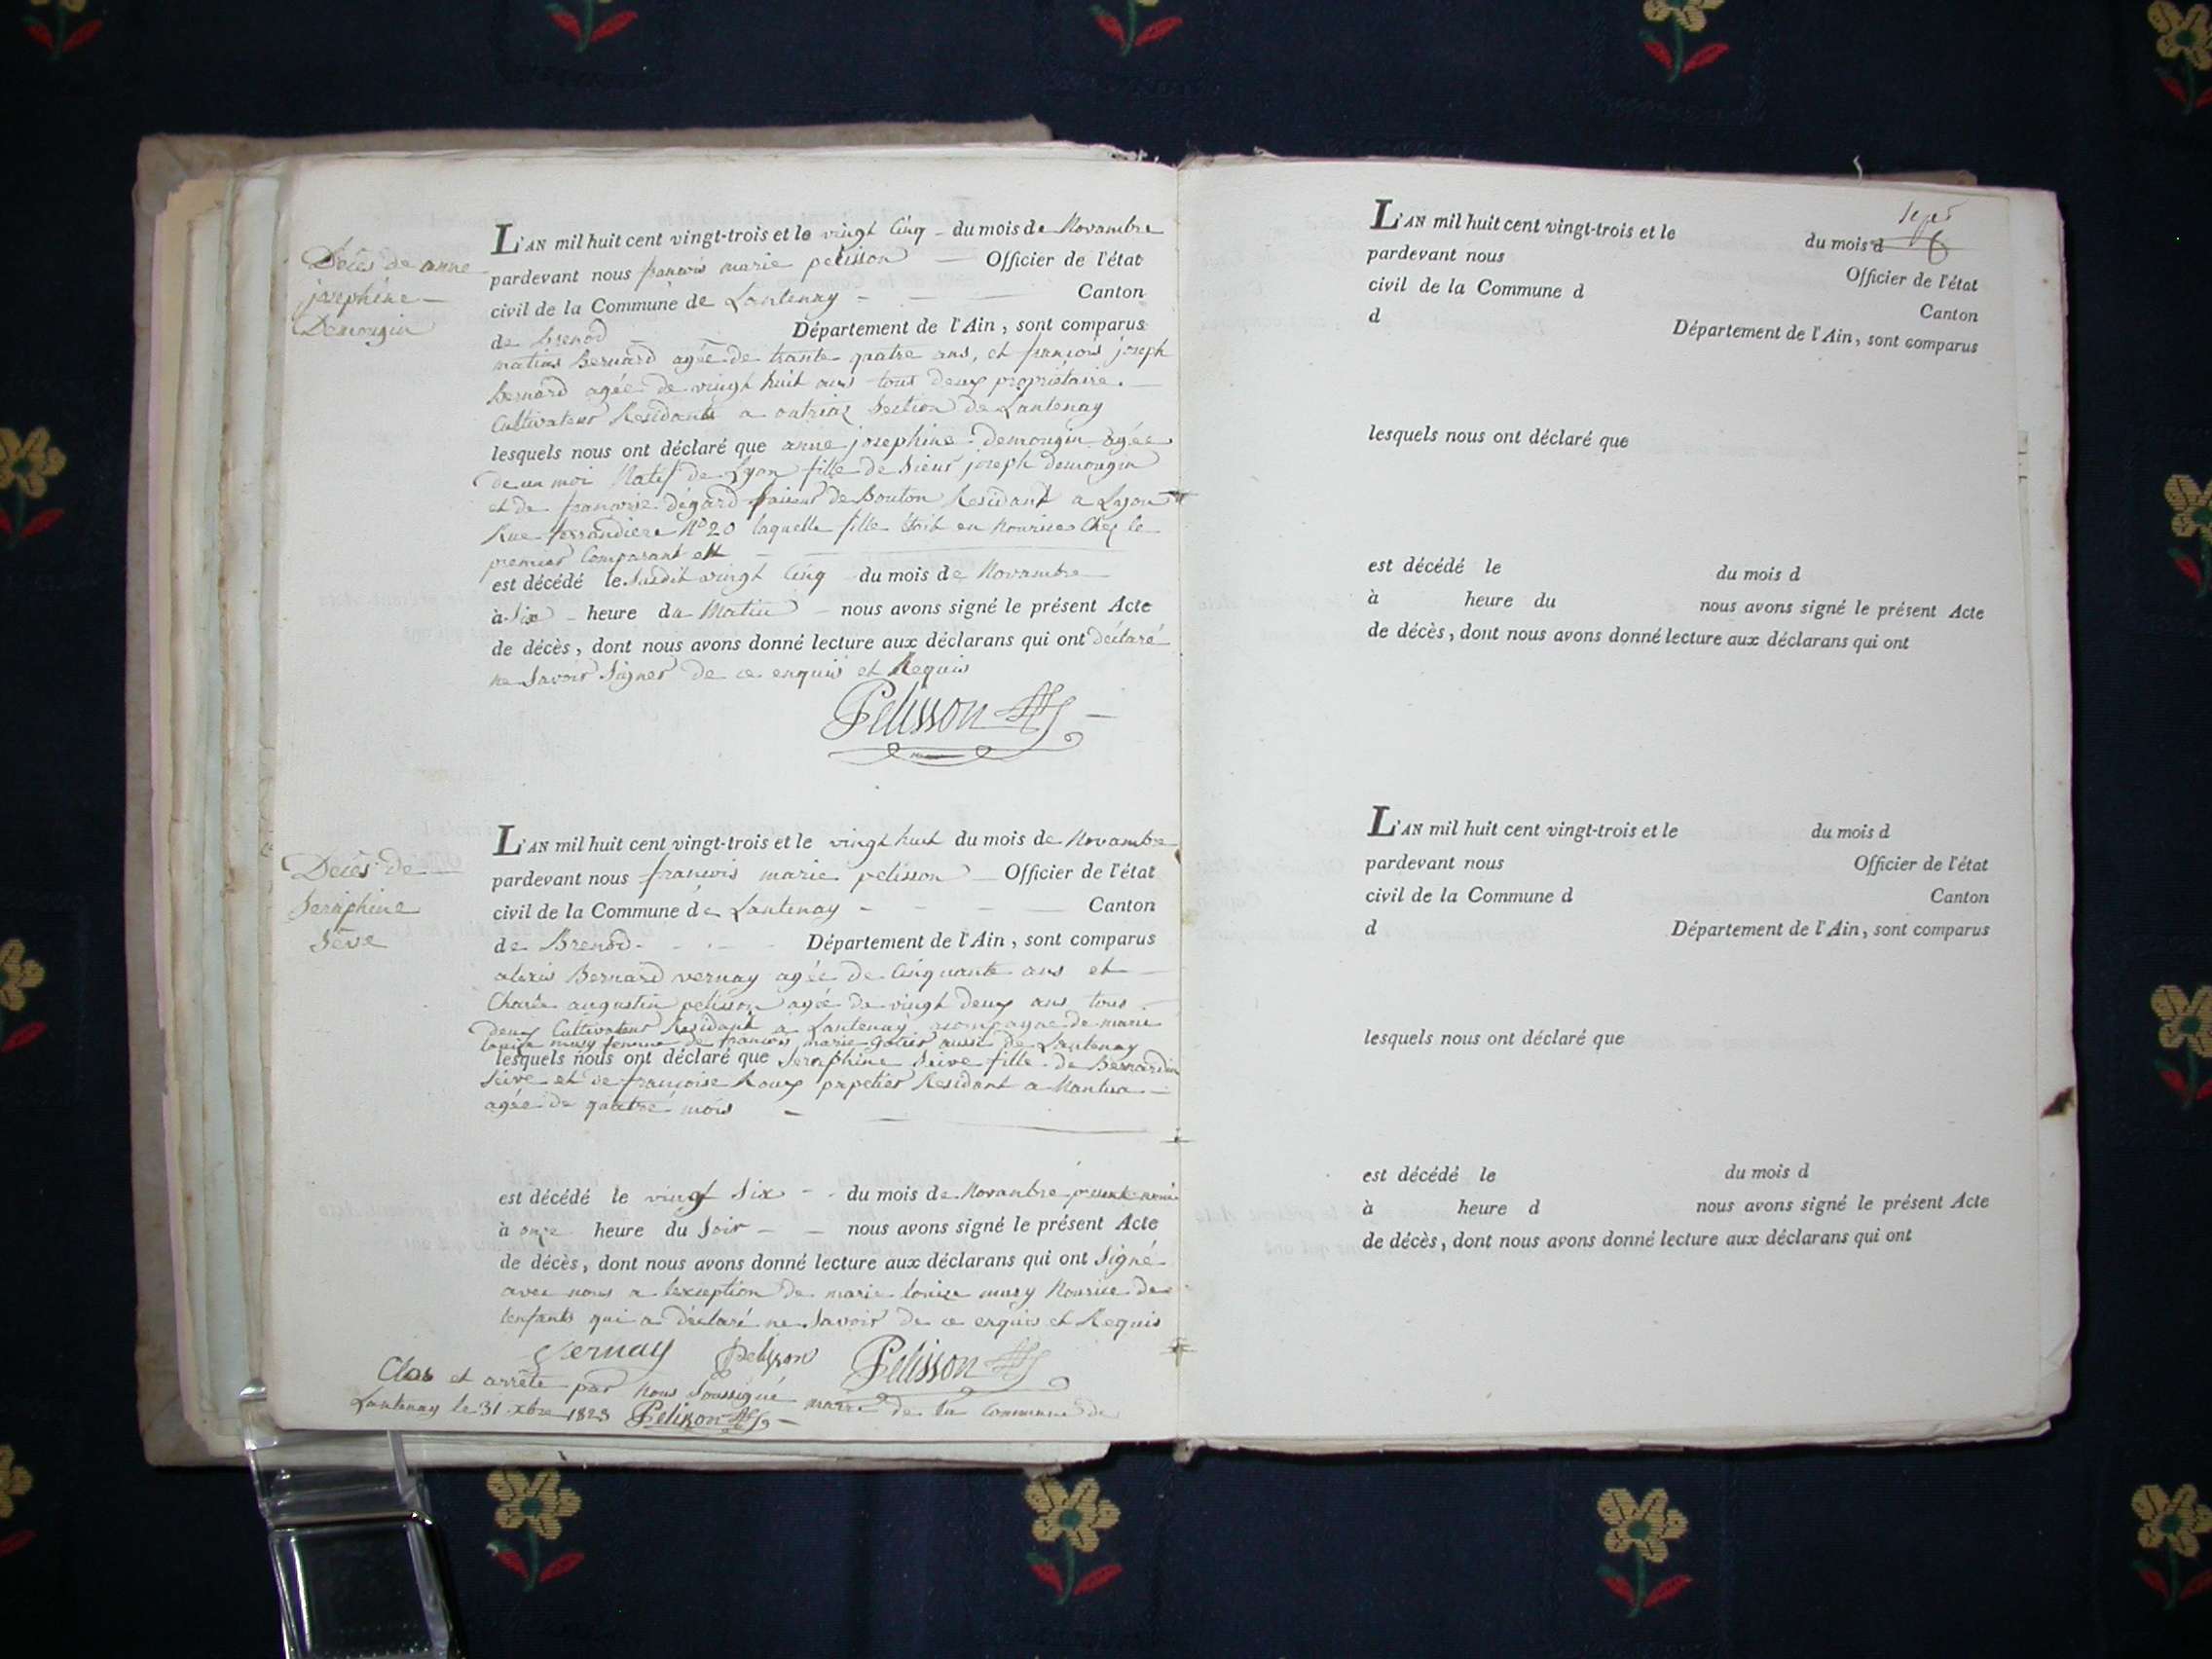 Décès de anne
josephine
Demougin
L'AN mil huit cent vingt-trois et le vingt Cinq du mois de Novambre
pardevant nous francois marie pelisson Officier de l'état
civil de la Commune de Lantenay Canton
de brenod Département de l'Ain, sont comparus
matias Bernard agée de trante quatre ans, et francois joseph
Bernard agée de vingt huit ans tous deux propriétaire
Cultivateur Residants a outriaz Section de Lantenay
lesquels nous ont déclaré que anne josephine demougin agée
de un moi Natif de Lyon fille de Sieur joseph demougin
et de francoise dégard de Bouton Residant a Lyon
Rue ferrandiere N° 20 laquelle fille étoit en nourices Chez le
premier Comparant
est décédé le Susdit vingt Cinq du mois de Novambre
à Six heure du Matin nous avons signé le présent Acte
de décès, dont nous avons donné lecture aux déclarans qui ont déclaré
ne Savoir Signer de ce enquis et Requis
Pelisson
Décès de
Seraphine
Sève
L'AN mil huit cent vingt-trois et le vingt huit du mois de Novambre
pardevant nous francois marie pelisson Officier de l'état
civil de la Commune de Lantenay Canton
de Brenod Département de l'Ain, sont comparus
alexis Bernard vernay agée de Cinquante ans et
Charle augustin pelisson agée de vingt deux ans tous
deux Cultivateur Residant a Lantenay acompagne de marie
louise musy femme de francois marie aussi de Lantenay
lesquels nous ont déclaré que Seraphine Seive fille de Bernardin
Seive et de francoise Roux papetier Residant a Nantua
agée de quatre mois
est décédé le vingt Six du mois de Novambre
à onze heure du Soir nous avons signé le présent Acte
de décès, dont nous avons donné lecture aux déclarans qui ont Signé
avec nous a lexception de marie louise musy Nourice de
lenfants qui a déclaré ne Savoir de ce enquis et Requis
Vernay Pelisson Pelisson
Clos et arrêté par nous Soussigné maire de la Commune de
Lantenay le 31 xbre 1823 Pelisson
6
L'AN mil huit cent vingt-trois et le du mois d
pardevant nous Officier de l'état
civil de la Commune d Canton
d Département de l'Ain, sont comparus
lesquels nous ont déclaré que
est décédé le du mois d
à heure du nous avons signé le présent Acte
de décès, dont nous avons donné lecture aux déclarans qui ont
L'AN mil huit cent vingt-trois et le du mois d
pardevant nous Officier de l'état
civil de la Commune d Canton
d Département de l'Ain, sont comparus
lesquels nous ont déclaré que
est décédé le du mois d
à heure d nous avons signé le présent Acte
de décès, dont nous avons donné lecture aux déclarans qui ont